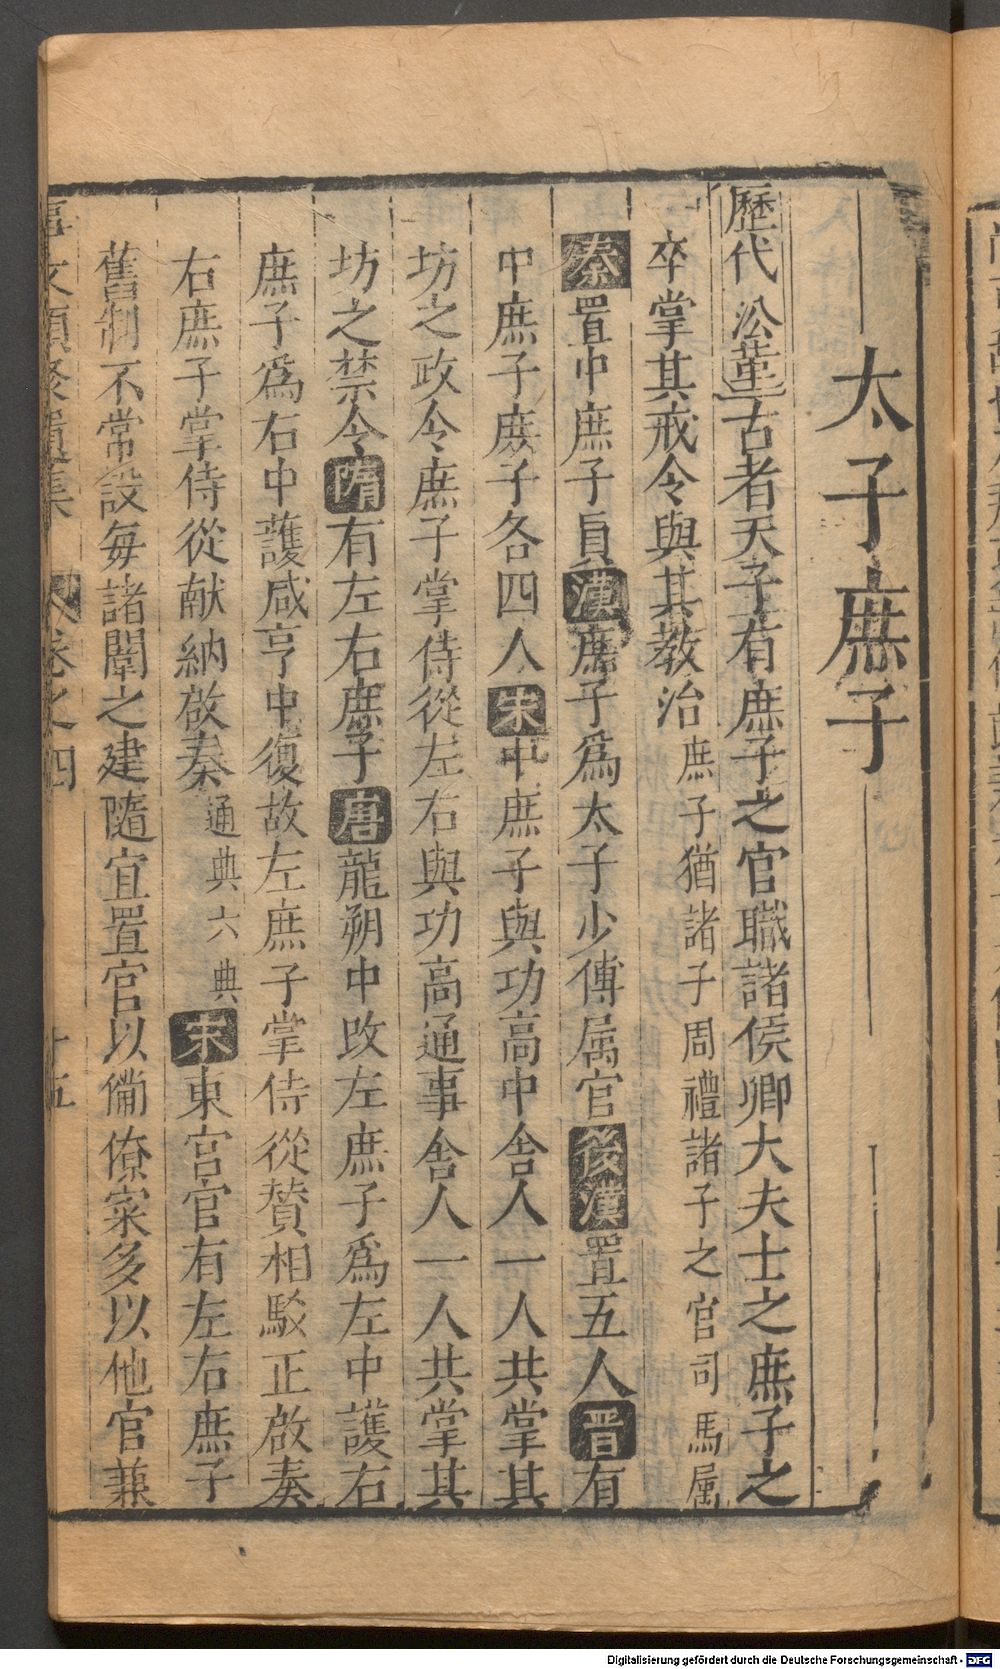 太子庶子
歷代沿革古者天子有庶子之官職諸侯卿大夫士之庶子之
卒掌其戒令與其教治庶子猶諸子周禮諸子之官司馬属
秦置中庶子員漢庶子爲太子少傅属官後漢置五人晋有
中庶子庶子各四人宋中庶子與功高中舍人一人共掌其
坊之政令庶子掌侍從左右與功高通事舍人一人共掌其
坊之禁令隋有左右庶子唐龍朔中改左庶子爲左中護右
庶子爲右中護咸亨中復故左庶子掌侍從賛相駁正啟奏
右庶子掌侍從献納啟奏通典六典宋東宮官有左右庶子
舊制不常設毎諸闈之建隨宜置官以備僚寀多以他官兼
事文類聚遺集 卷之四 十五
Digitalisierung gefördert durch die Deutsche Forschungsgemeinschaft - DFG